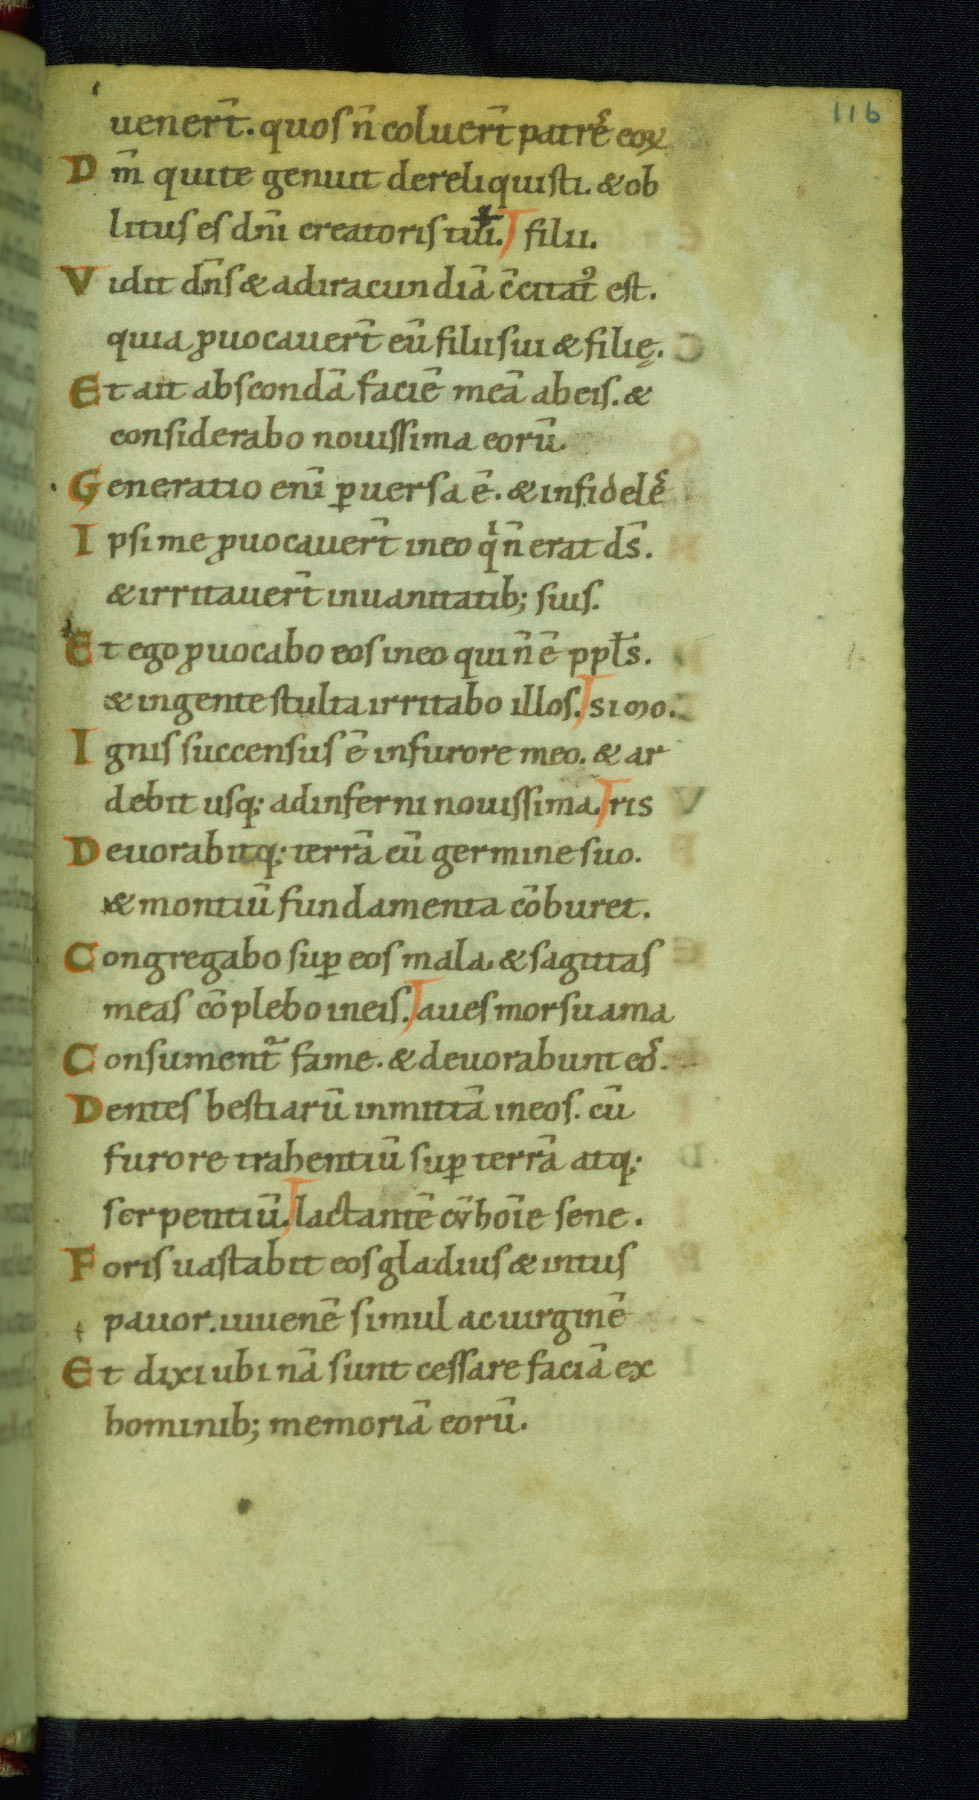 116
uenert̄. quos n̄ coluert̄ patrē eoꝝ
Dm̄ qui te genuit dereliquisti. & ob
litus es dn̄i creatoris tui. filii.
Vidit dn̄s & ad iracundiā c̄citat᷒ est.
quia ꝓuocauert̄ eū filii sui & filię.
Et ait abscondā faciē meā ab eis. &
considerabo nouissima eorū.
Generatio eni᷒ ꝑuersa ē. & infidelē
Ipsi me ꝓuocauert̄ in eo qͥ n̄ erat ds̄.
& irritauert̄ in uanitatib; suis.
Et ego ꝓuocabo eos in eo qui n̄ ē ppl̄s.
& in gente stulta irritabo illos. simo.
Ignis succensus ē in furore meo. & ar
debit usq; ad inferni nouissima. ris
Deuorabitq; terrā cū germine suo.
& montiū fundamenta cōburet.
Congregabo suꝑ eos mala. & sagittas
meas cōplebo in eis. aues morsu ama
Consument᷑ fame. & deuorabunt eos.
Dentes bestiarū inmittā in eos. cū
furore trahentiū suꝑ terrā atq;
serpentiū. lactantē cū hōie sene.
Foris uastabit eos gladius & intus
pauor. iuuenē simul ac uirginē
Et dixi ubi nā sunt cessare faciā ex
hominib; memoriā eorū.